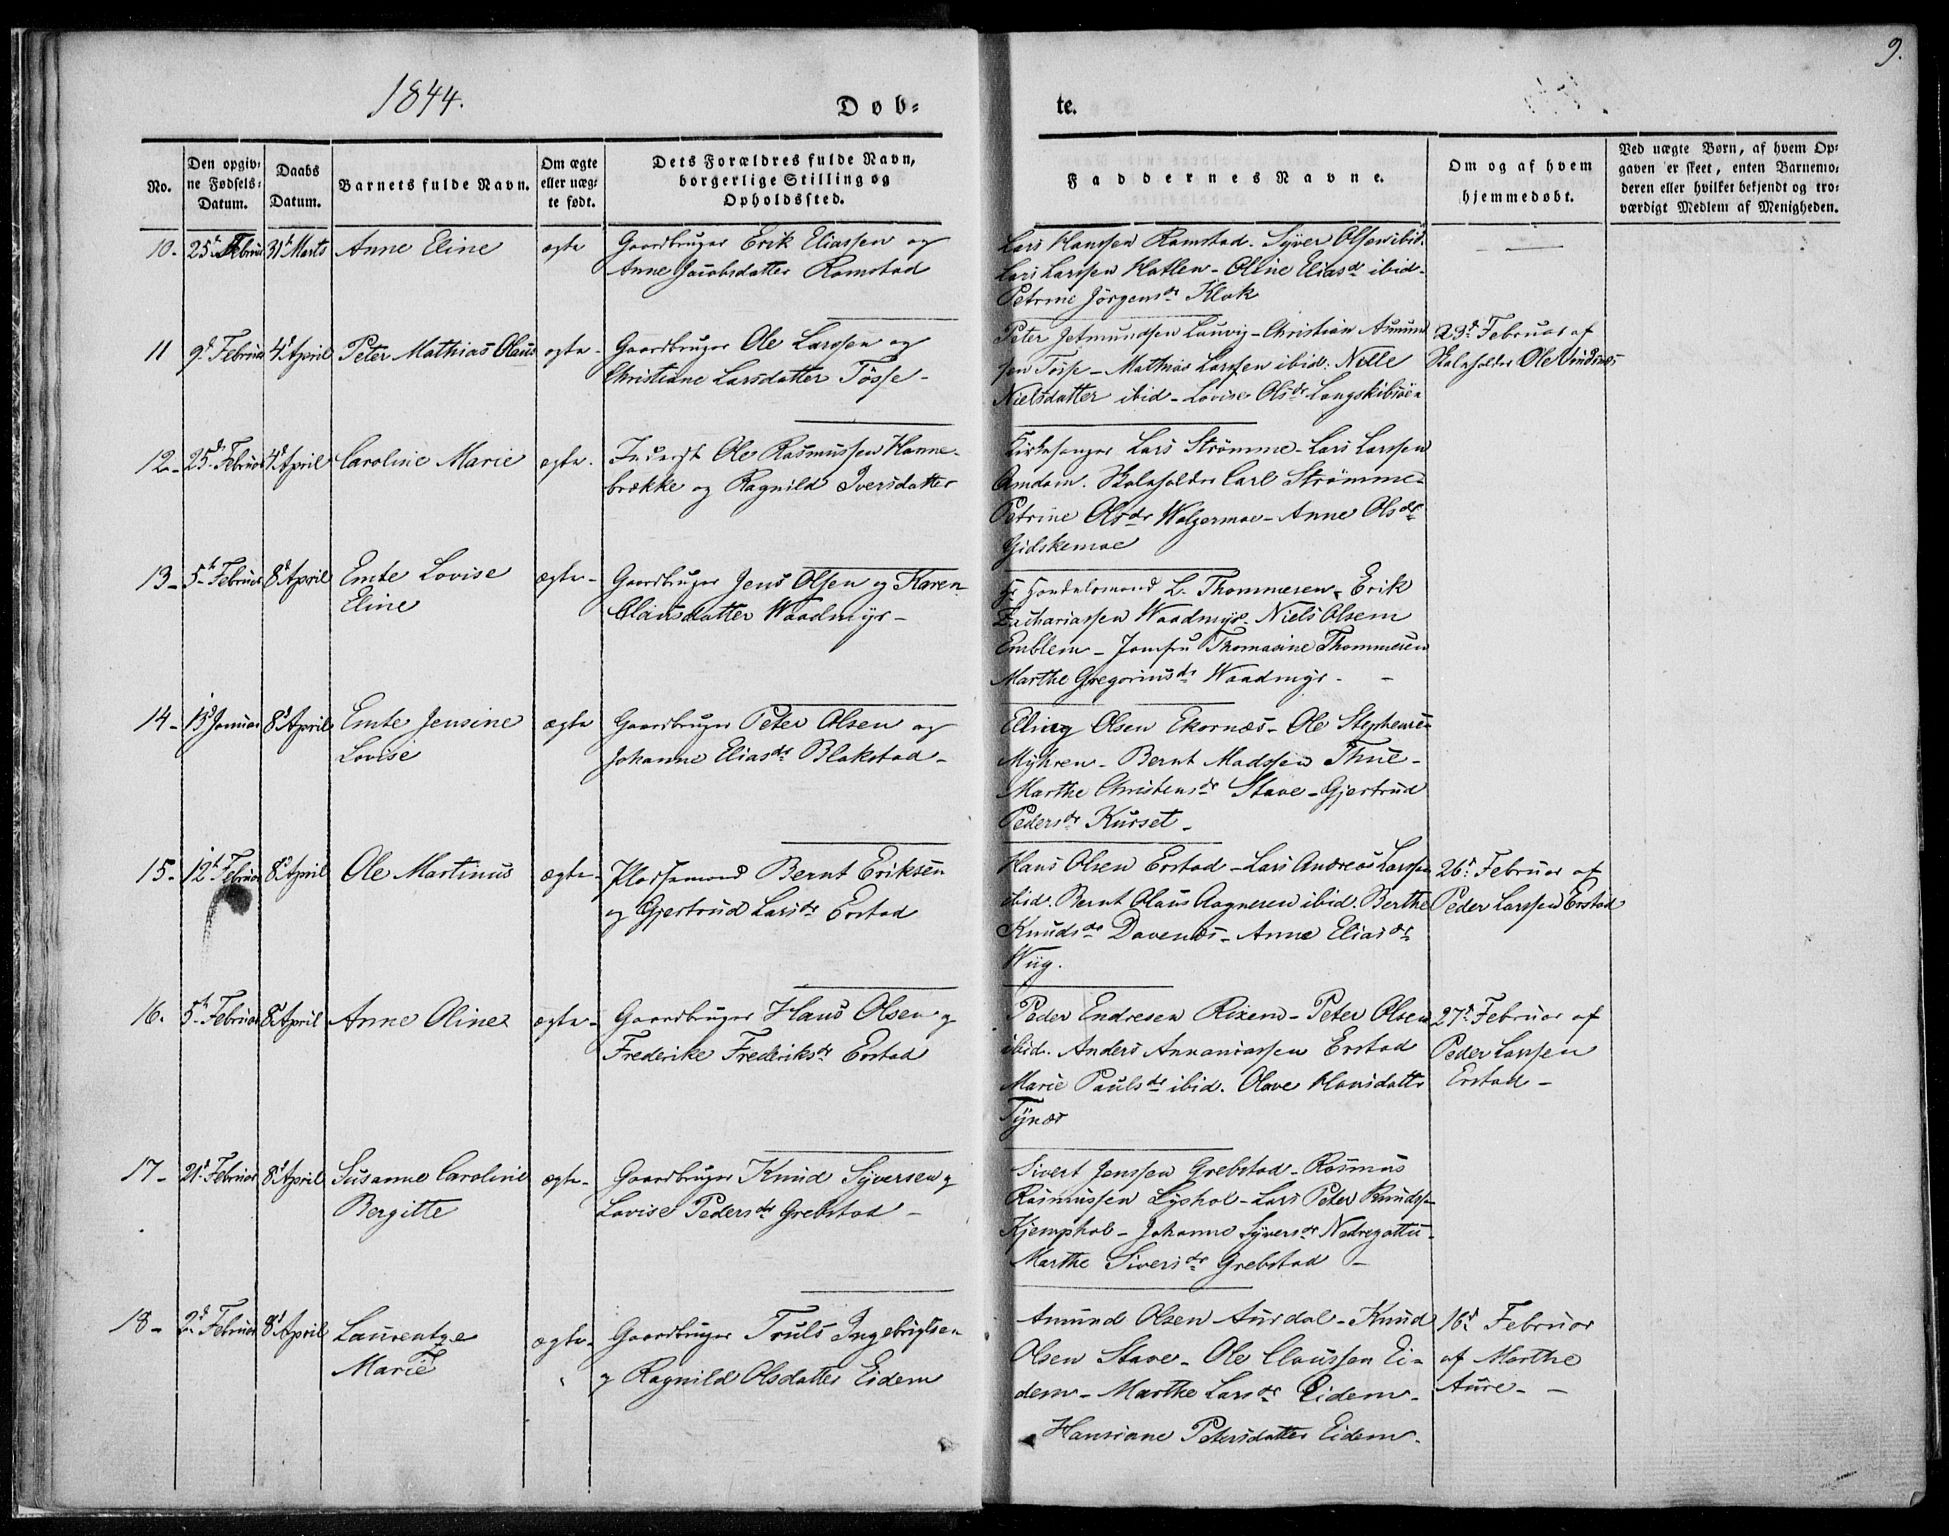 1844.
Døb-
te.
9.
No.
Den opgiv-
ne Fødsels-
Datum.
Daabs
Datum.
Barnets fulde Navn.
Om ægte
eller uæg-
te født.
Dets Forældres fulde Navn,
borgerlige Stilling og
Opholdssted.
Faddernes Navne.
Om og af hvem
hjemmedøbt.
Ved uægte Børn, af hvem Op-
gaven er skeet, enten Barnemo-
deren eller hvilket bekjendt og tro-
værdigt Medlem af Menigheden.
10. 25d Februar 31d Marts Anne Eline ægte Gaardbruger Erik Eliassen og
Anne Jacobsdatter Ramstad
Lars Hanssen Ramstad. Syver Olsen ibid.
Lars Larssen Hatlen - Oline Eliasd ibid -
Petrine Jörgensdr Klok
11 9d Februar 4d April Peter Mathias Olaus ægte - Gaardbruger Ole Larssen og
Christiane Larsdatter Tösse -
Peter Jetmundsen Lauvig - Christian Amund
sen Tösse - Mathias Larssen ibid: Nille
Nielsdatter ibid - Lovise Olsdr Langskibsöen
23d Februar af
Skoleholder Ole
12 - 25d Februar 4d April Caroline Marie ægte. Inderst Ole Rasmussen Hanne-
brække og Ragnild Iversdatter
Kirkesanger Lars Strömme - Lars Larssen
Amdam. Skoleholder Carl Strömme -
Petrine Olsdr Walgermoe - Anne Olsdr
Gidskemoe
13 - 5te Februar 8d April Emte Lovise
Eline
ægte - Gaardbruger Jens Olsen og Karen
Clausdatter Waadmyr -
Hr Handelsmand L. Thommesen - Erik
Zachariassen Waadmyr. Niels Olsen
Emblem - Jomfru Thomasine Thommesen
Marthe Gregoriusdr Waadmyr - -
14 - 13d Januar 8d April Emte Jensine
Lovise
ægte Gaardbruger Peter Olsen og
Johanne Eliasdr Blakstad -
Elling Olsen Ekornæs - Ole Stephensen
Myhren - Bernt Madssen Thue -
Marthe Christensdr Stave - Gjertrud
Pedersdr Kurset -
15 - 12t Februar 8d April Ole Martinus ægte - Pladsemand Bernt Eriksen
og Gjertrud Larsdr Erstad
Hans Olsen Erstad - Lars Andreas Larssen
ibid. Bernt Olaus Aagnesen ibid. Berthe
Knudsdr Davenes - Anne Eliasdr
Wiig.
26d Februar af
Peder Larssen Erstad
16. 5te Februar 8d April Anne Oline ægte - Gaardbruger Hans Olsen og
Frederike Frederiksdr Erstad
Peder Endresen Rixem - Peter Olsen
ibid. Anders Annaniassen Erstad
Marie Paulsdr ibid. Olave Hansdatter
Tynæs
27d Februar af
Peder Larssen
Erstad -
17 - 21d Februar 8d April Susanne Caroline
Bergitte
ægte - Gaardbruger Knud Syversen og
Lovise Pedersdr Grebstad -
Sivert Jenssen Grebstad - Rasmus
Rasmussen Lyshol - Lars Peter Knudss.
Kjemphol - Johanne Syversdr Nedregotten -
Marthe Siversdr Grebstad -
18 - 2d Februar 8d April Laurentze
Marie
ægte - Gaardbruger Truls Ingebrigtsen
og Ragnild Olsdatter Eidem
Amund Olsen Aurdal - Knud
Olsen Stave - Ole Claussen Ei-
dem - Marthe Larsdr Eidem -
Hansiane Petersdatter Eidem -
16d Februar
af Marthe
Aure - -